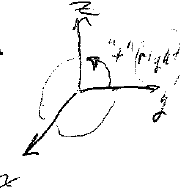 z
"+" (right)
y
x